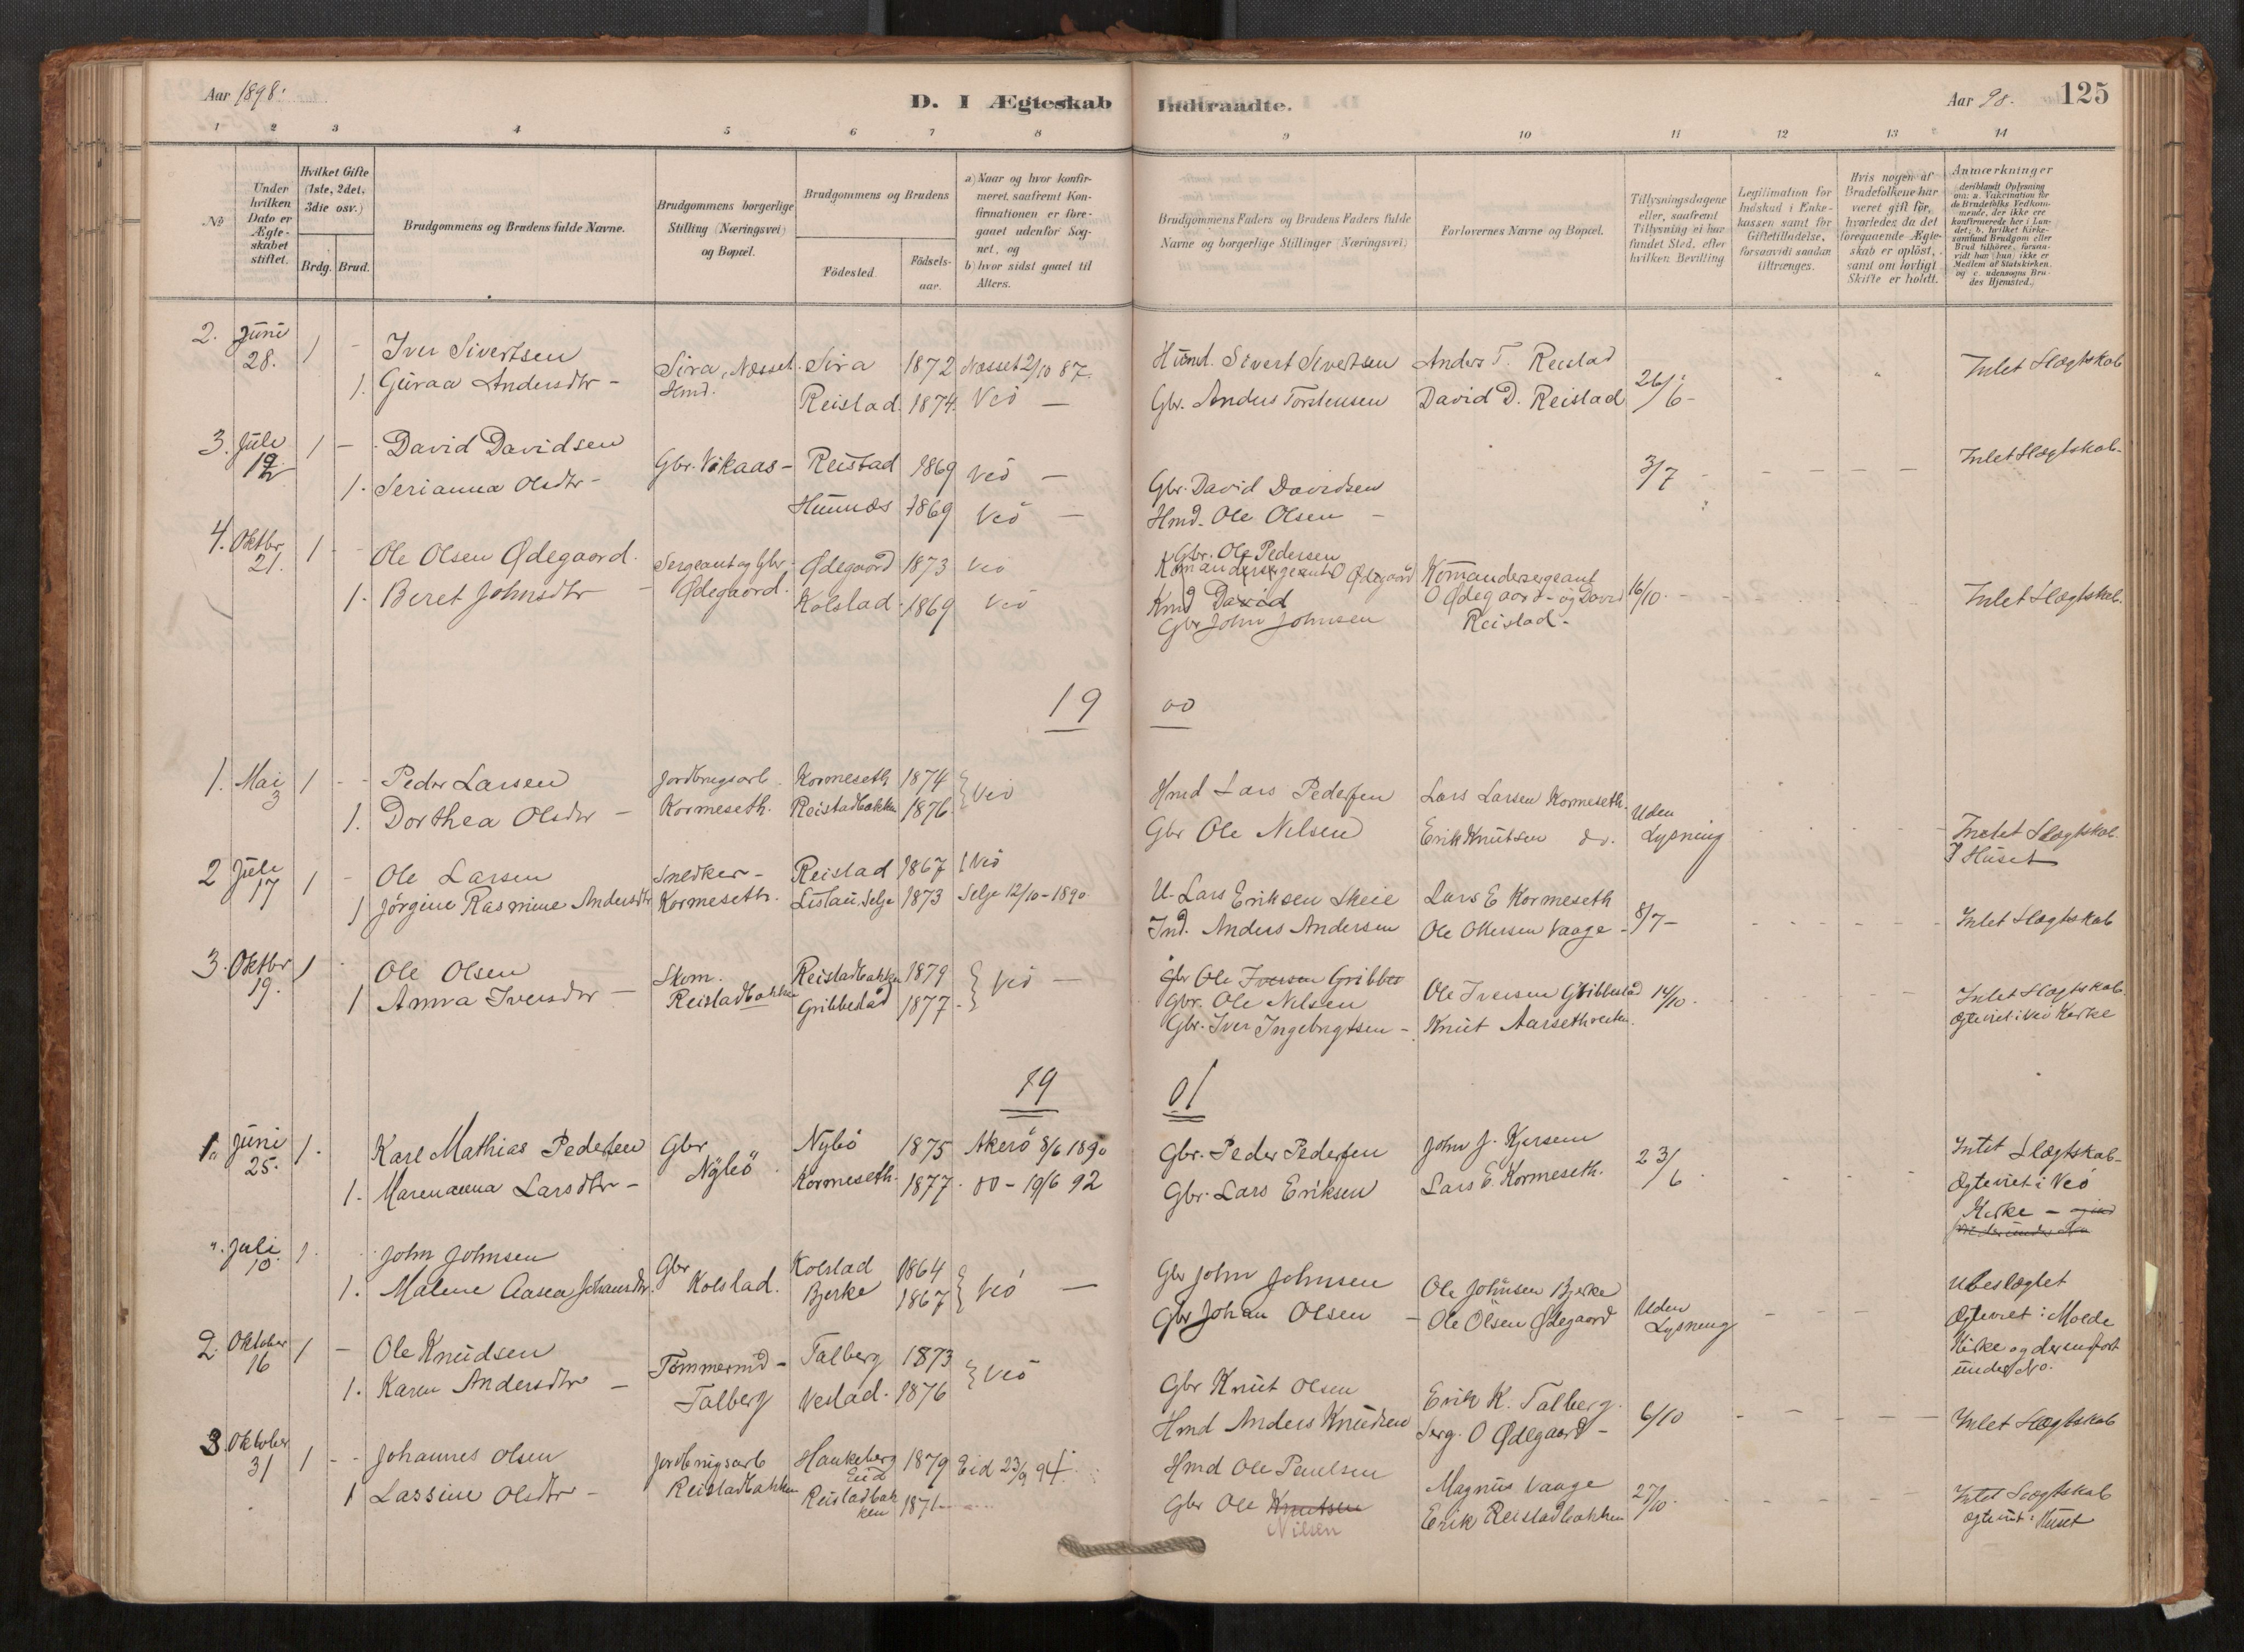 Aar 1898.
D. I Ægteskab Indtraadte.
Aar 98. 125
1 2 3 4 5 6 7 8 9 10 11 12 13 14
No
Under hvilken Dato er Ægteskabet stiftet.
Hvilket Gifte (1ste, 2det, 3die osv.)
Brdg. Brud.
Brudgommens og Brudens fulde Navne.
Brudgommens borgerlige Stilling (Næringsvei) og Bopæl.
Brudgommens og Brudens
Födested. Födselsaar.
a) Naar og hvor konfirmeret, saafremt Konfirmationen er foregaaet udenfor Sognet, og
b) hvor sidst gaaet til Alters.
Brudgommens Faders og Brudens Faders fulde Navne og borgerlige Stillinger (Næringsvei)
Forlovernes Navne og Bopæl.
Tillysningsdagene eller, saafremt Tillysning ei har fundet Sted, efter hvilken Bevilling
Legitimation for Indskud i Enkekassen samt for Giftetilladelse, forsaavidt saadan tiltrænges.
Hvis nogen af Brudefolkene har været gift før, hvorledes da det foregaaende Ægteskab er opløst, samt om lovligt Skifte er holdt.
Anmærkninger
deriblandt Oplysning om: a. Vakcination for de Brudefolks Vedkommende, der ikke ere konfirmerede her i Landet; b. hvilket Kirkesamfund Brudgom eller Brud tilhører, forsaavidt han (hun) ikke er Medlem af Statskirken, og c. udensogns Brudes Hjemsted.
2. Juni 28. 1 - Iver Sivertsen Sira, Nesset Sira 1872 Nesset 2/10 87. Husmd. Sivert Sivertsen Anders T. Reistad Intet Slægtskab
1. Guraa Andersdtr - Hmd. Reistad. 1874. Veö - Gbr. Anders Torstensen David D. Reistad 26/6 -
3. Juli 12 1 - David Davidsen Gbr. Vikaas - Reistad 1869 Veö - Gbr. David Davidsen 3/7 - Intet Slægtskab.
1. Serianna Olsdtr - Hunnes 1869 Veö - Hmd. Ole Olsen -
4. Oktbr 21. 1 - Ole Olsen Ødegaard. Sergeant og Gbr. Ødegaard 1873 Veö Gbr. Ole Pedersen
Komandersergeant O Ødegaard Komandersergeant
1. Beret Johnsdtr - Ødegaard. Kolstad 1869 Veö Kmd David O Ødegaard - og David 16/10. - Intet Slægtskab.
Gbr John Johnsen Reistad -
19 00
1. Mai 3 1 - Peder Larsen Jordbrugsarb. Kormeseth 1874 } Veö Hmd Lars Pedersen Lars Larsen Kormeseth. Uden
1. Dorthea Olsdtr - Kormeseth. Reistadbakken 1876 Gbr Ole Nilsen Erik Knutsen do. Lysning Intet Slægtskab
I Huset
2 Juli 17 1 - Ole Larsen Snedker - Reistad 1867 Veö U. Lars Eriksen Skeie Lars E Kormeseth
1 Jörgine Rasmine Andersdtr Kormeseth. Listau, Selje 1873 Selje 12/10 - 1890 Ind. Anders Andersen Ole Ottersen Vaage - 8/7 - Intet Slægtskab
3. Oktbr 19. 1 Ole Olsen Skom. Reistadbakken 1879 } Veö - Gbr Ole Iversen Gribbes
Gbr. Ole Nilsen Ole Iversen Gribbestad 14/10. Intet Slægtskab.
1 Anna Iversdtr - Reistadbakken Gribbestad 1877 - Gbr. Iver Ingebrigtsen - Knut Aarsethreiten. Ægteviet i Veö Kirke
19 01
1. Juni 25. 1. Karl Mathias Pedersen Gbr Nybö 1875 Akerö 8/6 1890 Gbr. Peder Pedersen John J. Kjersem 23/6 Intet Slægtskab -
1. Marenanna Larsdtr - Nybö Kormeseth. 1877. do - 19/6 92 Gbr. Lars Eriksen Lars E. Kormeseth. Ægteviet i Veö
Kirke -
". Juli 10. 1. John Johnsen Gbr Kolstad 1864 } Veö - Gbr John Johnsen Ole Johnsen Bjerke Ubeslægtet
1. Malene Aasea Johansdtr. Kolstad. Bjerke 1867 Gbr Johan Olsen - Ole Olsen Ødegaard Uden Lysning Ægteviet i Molde
Kirke og der indfört
under No.
2. Oktober 16 1 - Ole Knudsen Tömmermd - Talberg 1873 } Veö Gbr Knut Olsen Erik K. Talberg.
1. Karen Andersdtr - Talberg Vestad. 1876 Hmd Anders Knudsen Serg. O Ødegaard - 6/10 Intet Slægtskab
3. Oktober 31 1 - Johannes Olsen Jordbrugsarb Haukeberg Eid 1879 Eid 23/9 94. Hmd Ole Paulsen Magnus Vaage 27/10. Intet Slægtskab
1 Lassine Olsdtr - Reistadbakken Reistadbakken 1871 Gbr Ole Knutsen Erik Reistadbakken Ægteviet i Huset
Nilsen